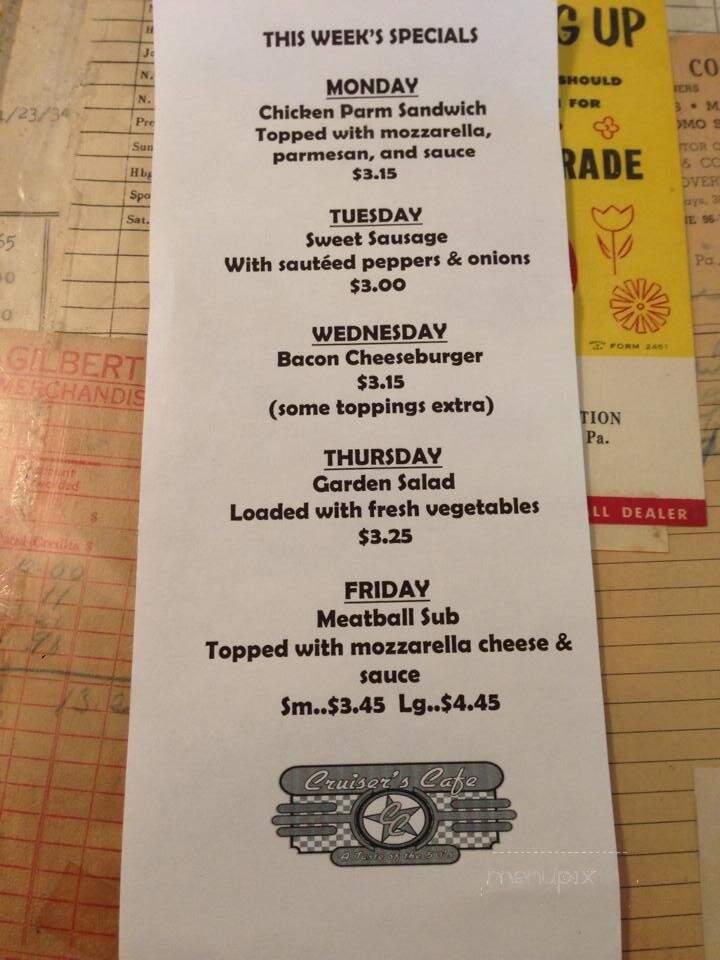 THIS WEEK'S SPECIALS
MONDAY
Chicken Parm Sandwich
Topped with mozzarella,
parmesan, and sauce
$3.15
TUESDAY
Sweet Sausage
With sautéed peppers & onions
$3.00
WEDNESDAY
Bacon Cheeseburger
$3.15
(some toppings extra)
THURSDAY
Garden Salad
Loaded with fresh vegetables
$3.25
FRIDAY
Meatball Sub
Topped with mozzarella cheese &
sauce
Sm..$3.45 Lg..$4.45
Cruiser's Cafe
CC
A Taste of the 50's
menupix
G UP
SHOULD
FOR
RADE
FORM 2461
TION
Pa.
LL DEALER
CO
Pa.
N.
N.
Pre
Sun
Hbg
Spo
Sat.
GILBERT
MERCHANDIS